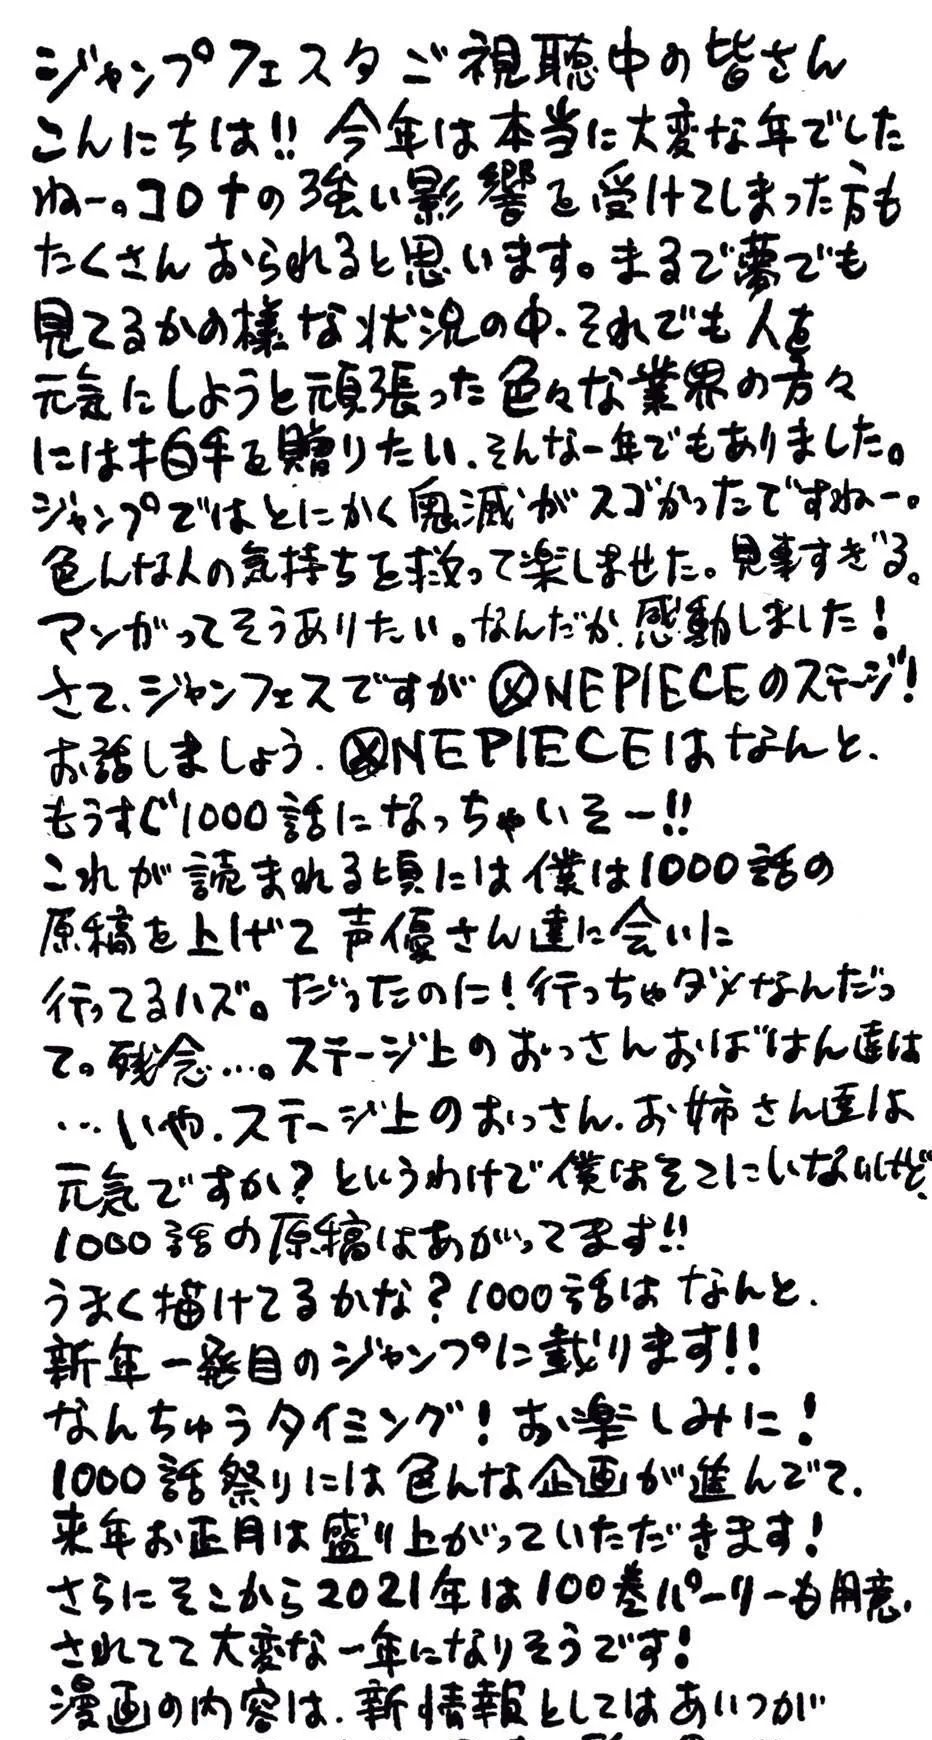 ジャンプフェスタご視聴中の皆さん
こんにちは!! 今年は本当に大変な年でした
ねー。コロナの強い影響を受けてしまった方も
たくさんおられると思います。まるで夢でも
見てるかの様な状況の中、それでも人を
元気にしようと頑張った色々な業界の方々
には拍手を贈りたい、そんな一年でもありました。
ジャンプではとにかく鬼滅がスゴかったですねー。
色んな人の気持ちを救って楽しませた。見事すぎる。
マンガってそうありたい。なんだか、感動しました!
さて、ジャンフェスですがONE PIECEのステージ!
お話しましょう。ONE PIECEはなんと、
もうすぐ1000話になっちゃいそー!!
これが読まれる頃には僕は1000話の
原稿を上げて声優さん達に会いに
行ってるハズ。だったのに!行っちゃダメなんだっ
て。残念…。ステージ上のおっさんおばはん達は
…いや、ステージ上のおっさん、お姉さん達は
元気ですか?というわけで僕はそこにいないけど、
1000話の原稿はあがってます!!
うまく描けてるかな?1000話はなんと、
新年一発目のジャンプに載ります!!
なんちゅうタイミング!お楽しみに!
1000話祭りには色んな企画が進んでて、
来年お正月は盛り上がっていただきます!
さらにそこから2021年は100巻パーリーも用意、
されてて大変な一年になりそうです!
漫画の内容は、新情報としてはあいつが